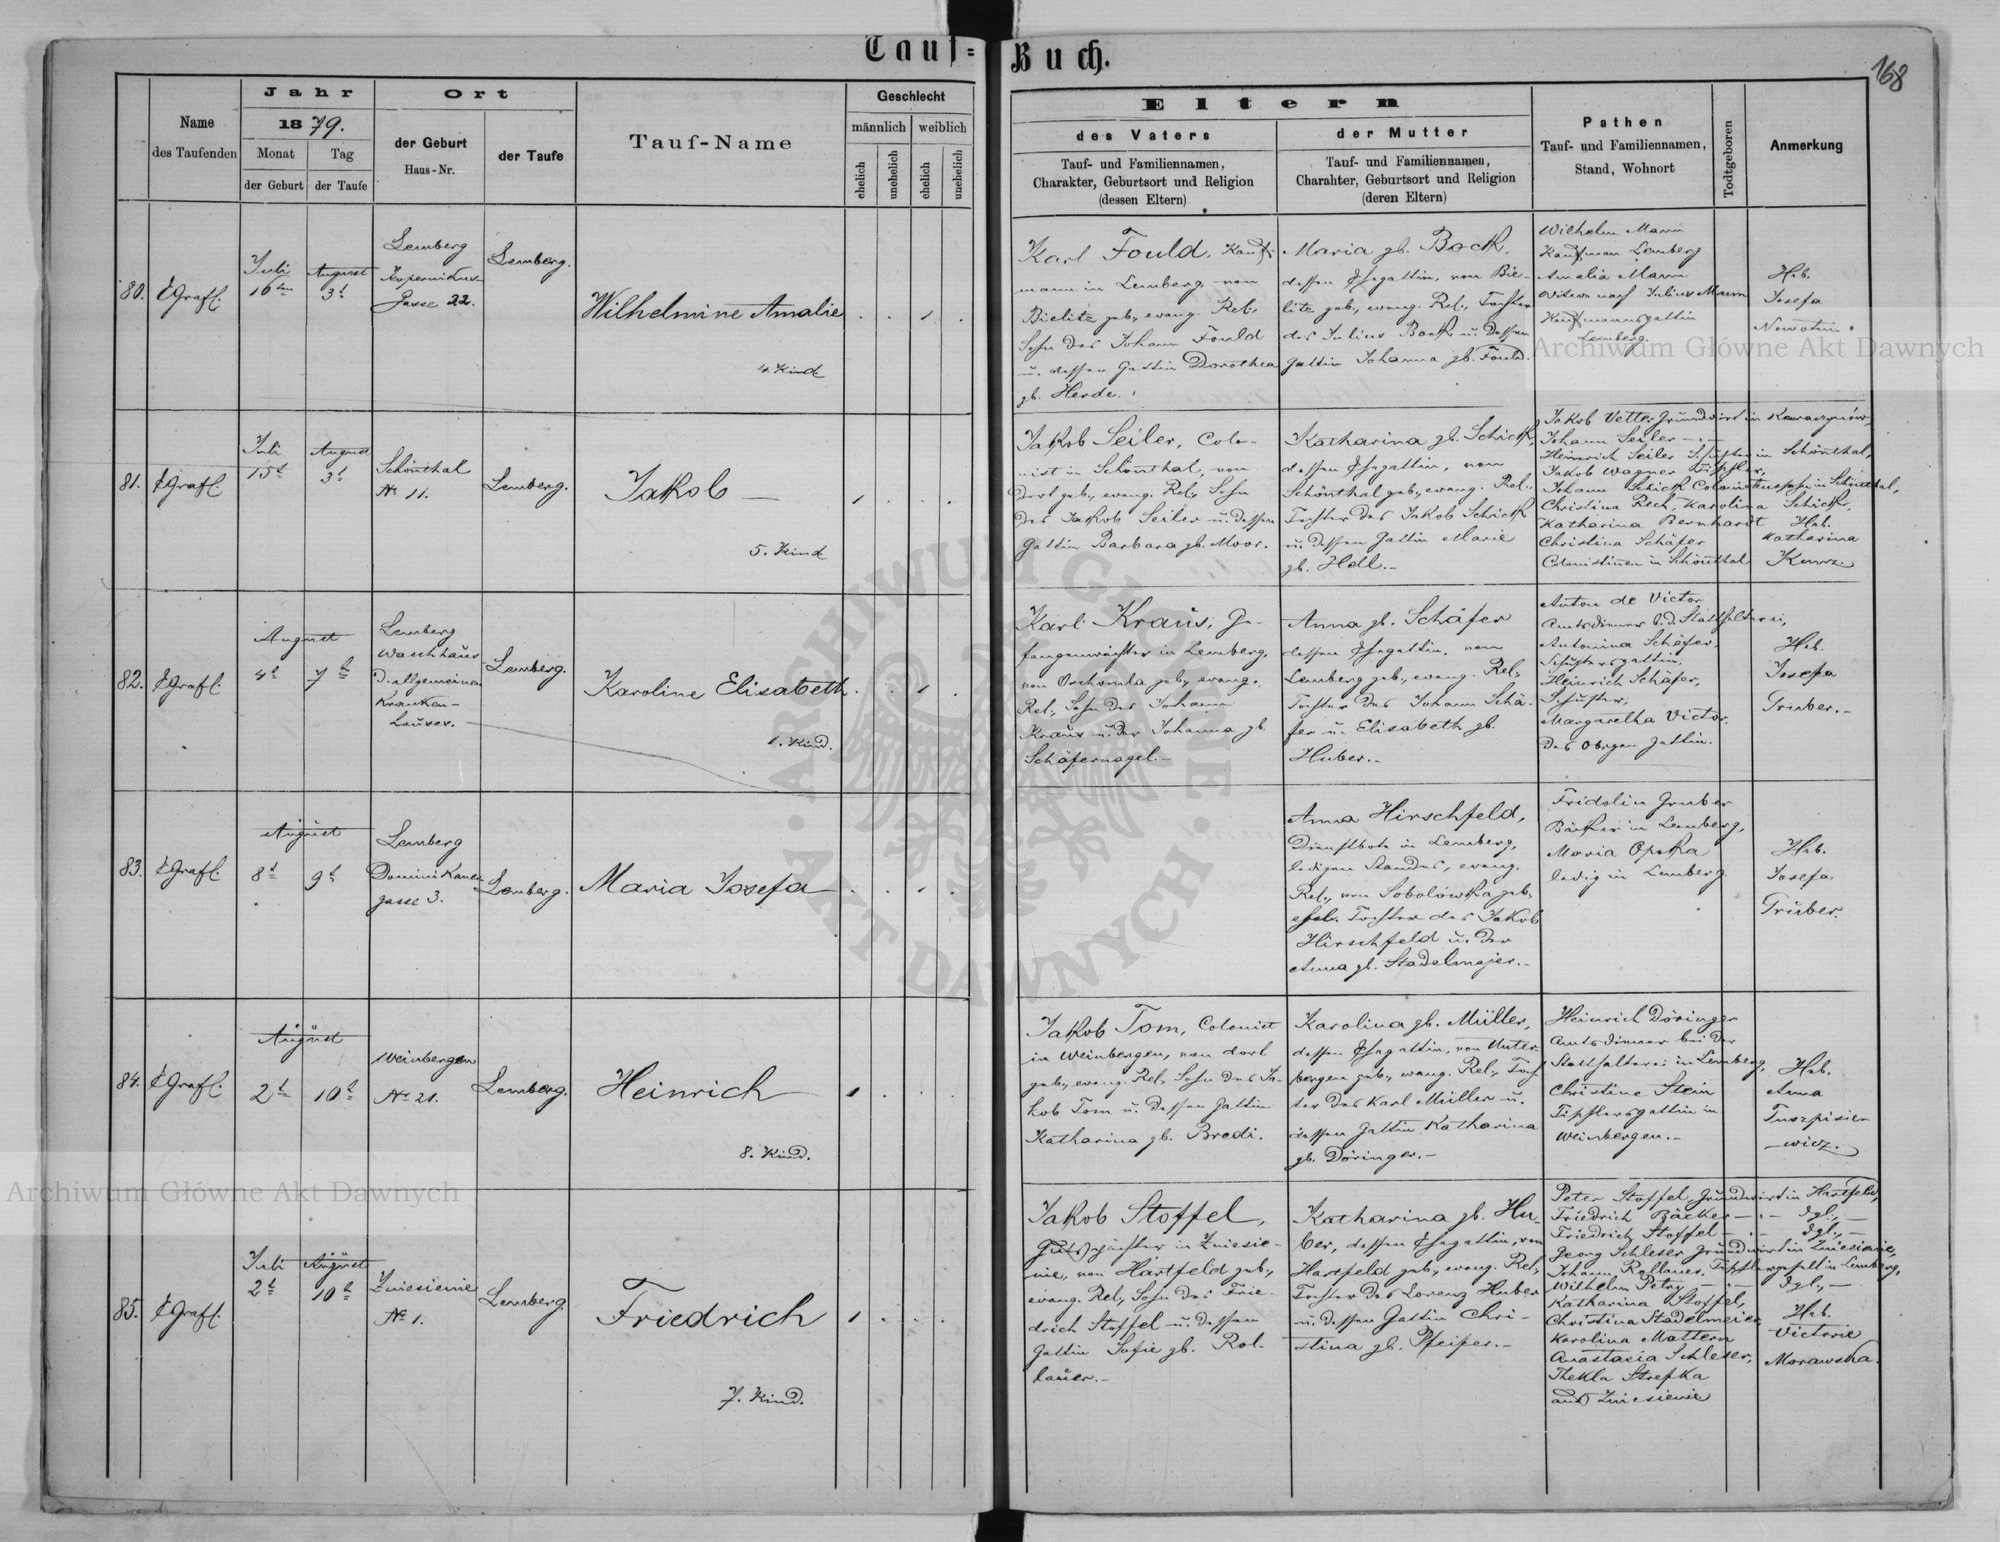 Tauf-Buch.
168
Name
des Taufenden
Jahr
1879.
Monat
der Geburt
Tag
der Taufe
Ort
der Geburt
Haus-Nr.
der Taufe
Tauf-Name
Geschlecht
männlich
weiblich
ehelich
unehelich
ehelich
unehelich
Eltern
des Vaters
Tauf- und Familiennamen,
Charakter, Geburtsort und Religion
(dessen Eltern)
der Mutter
Tauf- und Familiennamen,
Charahter, Geburtsort und Religion
(deren Eltern)
Pathen
Tauf- und Familiennamen,
Stand, Wohnort
Todtgeboren
Anmerkung
80.
Juli
16
August
3
Lemberg
Kopernikus
Gasse 22.
Lemberg.
Wilhelmine Amalie
4. Kind
Karl Fould, Kauf-
mann in Lemberg, von
Bielitz geb., evang. Rel.,
Sohn des Johann Fould
u. dessen Gattin Dorothea
gb. Herde.
Maria gb. Bock,
dessen Ehegattin, von Bie-
litz geb., evang. Rel., Tochter
des Julius Bock u. dessen
Gattin Johanna gb. Fould.
Wilhelm Mann
Kaufman Lemberg
Amalia Mann
Witwe nach Julius Mann
Kaufmannsgattin
Lemberg.
Heb.
Josefa
81.
Juli
15
August
3
Schönthal
No 11.
Lemberg.
Jakob
5. Kind
Jakob Seiler, Colo-
nist in Schönthal, von
dort geb., evang. Rel., Sohn
des Jakob Seiler u. dessen
Gattin Barbara gb. Moor.
Katharina gb. Schick,
dessen Ehegattin, von
Schönthal geb., evang. Rel.,
Tochter des Jakob Schick
u. dessen Gattin Marie
gb. Holl.
Jakob Vetter Grundwirt in
Johann Seiler
Heinrich Seiler in Schönthal,
Jakob Wagner Tischler,
Johann Schick Colonistenssohn in Schönthal,
Christina Rech, Karolina Schick,
Katharina Bernhardt
Christina Schäfer
Colonistinen in Schönthal
Heb.
Katharina
82.
August
4
7
Lemberg
Waschhaus
d. allgemeinen
Kranken-
hauses.
Lemberg.
Karoline Elisabeth
1. Kind.
Karl Kraus, Ge-
fangenwächter in Lemberg,
geb., evang.
Rel., Sohn des Johann
Kraus u. der Johanna gb.
Schäfernagel.
Anna gb. Schäfer
dessen Ehegattin, von
Lemberg geb., evang. Rel.,
Tochter des Johann Schä-
fer u. Elisabeth gb.
Huber.
Anton de Victor
Amtsdiener b. d. Statthalterei,
Antonina Schäfer,
Schustersgattin,
Heinrich Schäfer,
Schuster,
Margaretha Victor
des Obigen Gattin.
Heb.
Josefa
Gruber.
83.
August
8
9
Lemberg
Dominikaner
gasse 3.
Lemberg.
Maria Josefa
Anna Hirschfeld,
Dienstbote in Lemberg,
ledigen Standes, evang.
Rel., von Sobolówka geb.
ehel. Tochter des Jakob
Hirschfeld u. der
Anna gb. Stadelmajer.
Fridolin Gruber
Bäcker in Lemberg,
Maria Opoka
ledig in Lemberg
Heb.
Josefa
Gruber.
84.
August
2
10
Weinbergen
No 21.
Lemberg.
Heinrich
8. Kind.
Jakob Tom, Colonist
in Weinbergen, von dort
geb., evang. Rel., Sohn des Ja-
kob Tom u. dessen Gattin
Katharina gb. Bredi.
Karolina gb. Müller,
dessen Ehegattin, von Unter-
bergen geb., evang. Rel., Toch-
ter des Karl Müller u.
dessen Gattin Katharina
gb. Döringer.
Heinrich Döringer
Amtsdiener bei der
Statthalterei in Lemberg,
Christine Stein
Tischlersgattin in
Weinbergen.
Heb.
Anna
85.
Juli
2
August
10
Zniesienie
No 1.
Lemberg.
Friedrich
7. Kind.
Jakob Stoffel,
Gutspächter in Zniesie-
nie, von Hartfeld geb.,
evang. Rel., Sohn des Frie-
drich Stoffel u. dessen
Gattin Sofie gb. Rol-
lauer.
Katharina gb. Hu-
ber, dessen Ehegattin, von
Hartfeld geb., evang. Rel.,
Tochter des Lorenz Huber
u. dessen Gattin Chri-
stina gb. Pfeifer.
Peter Stoffel, Grundwirt in Hartfeld,
Friedrich Bäcker dgl.,
Friedrich Stoffel dgl.,
Georg Schleser Grundwirt in Zniesienie,
Johann Rollauer, Tischlergesell in Lemberg,
Wilhelm Petry dgl.,
Katharina Stoffel,
Christina Stadelmeier,
Karolina Mattern
Anastasia Schleser,
Thekla Strefka
aus Zniesienie
Heb.
Victorie
Morawska.
Archiwum Główne Akt Dawnych
Archiwum Główne Akt Dawnych
ARCHIWUM GŁÓWNE AKT DAWNYCH